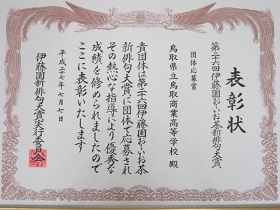 表彰状
第二十六回伊藤園お〜いお茶新俳句大賞
団体応募賞
鳥取県立鳥取商業高等学校 殿
貴団体は第二十六回伊藤園お〜いお茶
新俳句大賞に団体で応募され
その熱心な指導により優秀な
成績を修められましたので
ここに表彰いたします
平成二十七年七月七日
伊藤園新俳句大賞実行委員会